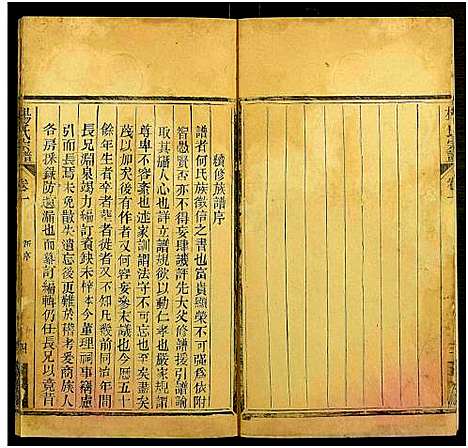 楊氏宗譜
卷一
三
續修族譜序
譜者何氏族徵信之書也富貴顯榮不可濫為依附
智愚賢否亦不得妄肆譏評先大父修譜援引譜論
取其關人心也詳立譜規欲以動仁孝也嚴家規謂
尊卑不容紊也述家訓謂法守不可忘也至矣盡矣
蔑以加矣後有作者又何容妄參末議也今曆五十
餘年間生者徙者又不知凡幾前同治年間
長兄淵泉竭力編訂殘缺未梓本今董理祠事竊慮
引而長焉未免散失遺忘後更難於稽考爰商族人
各房採錄防遺漏也而纂訂編輯仍任長兄以竟昔
楊氏宗譜
卷一
新序
四